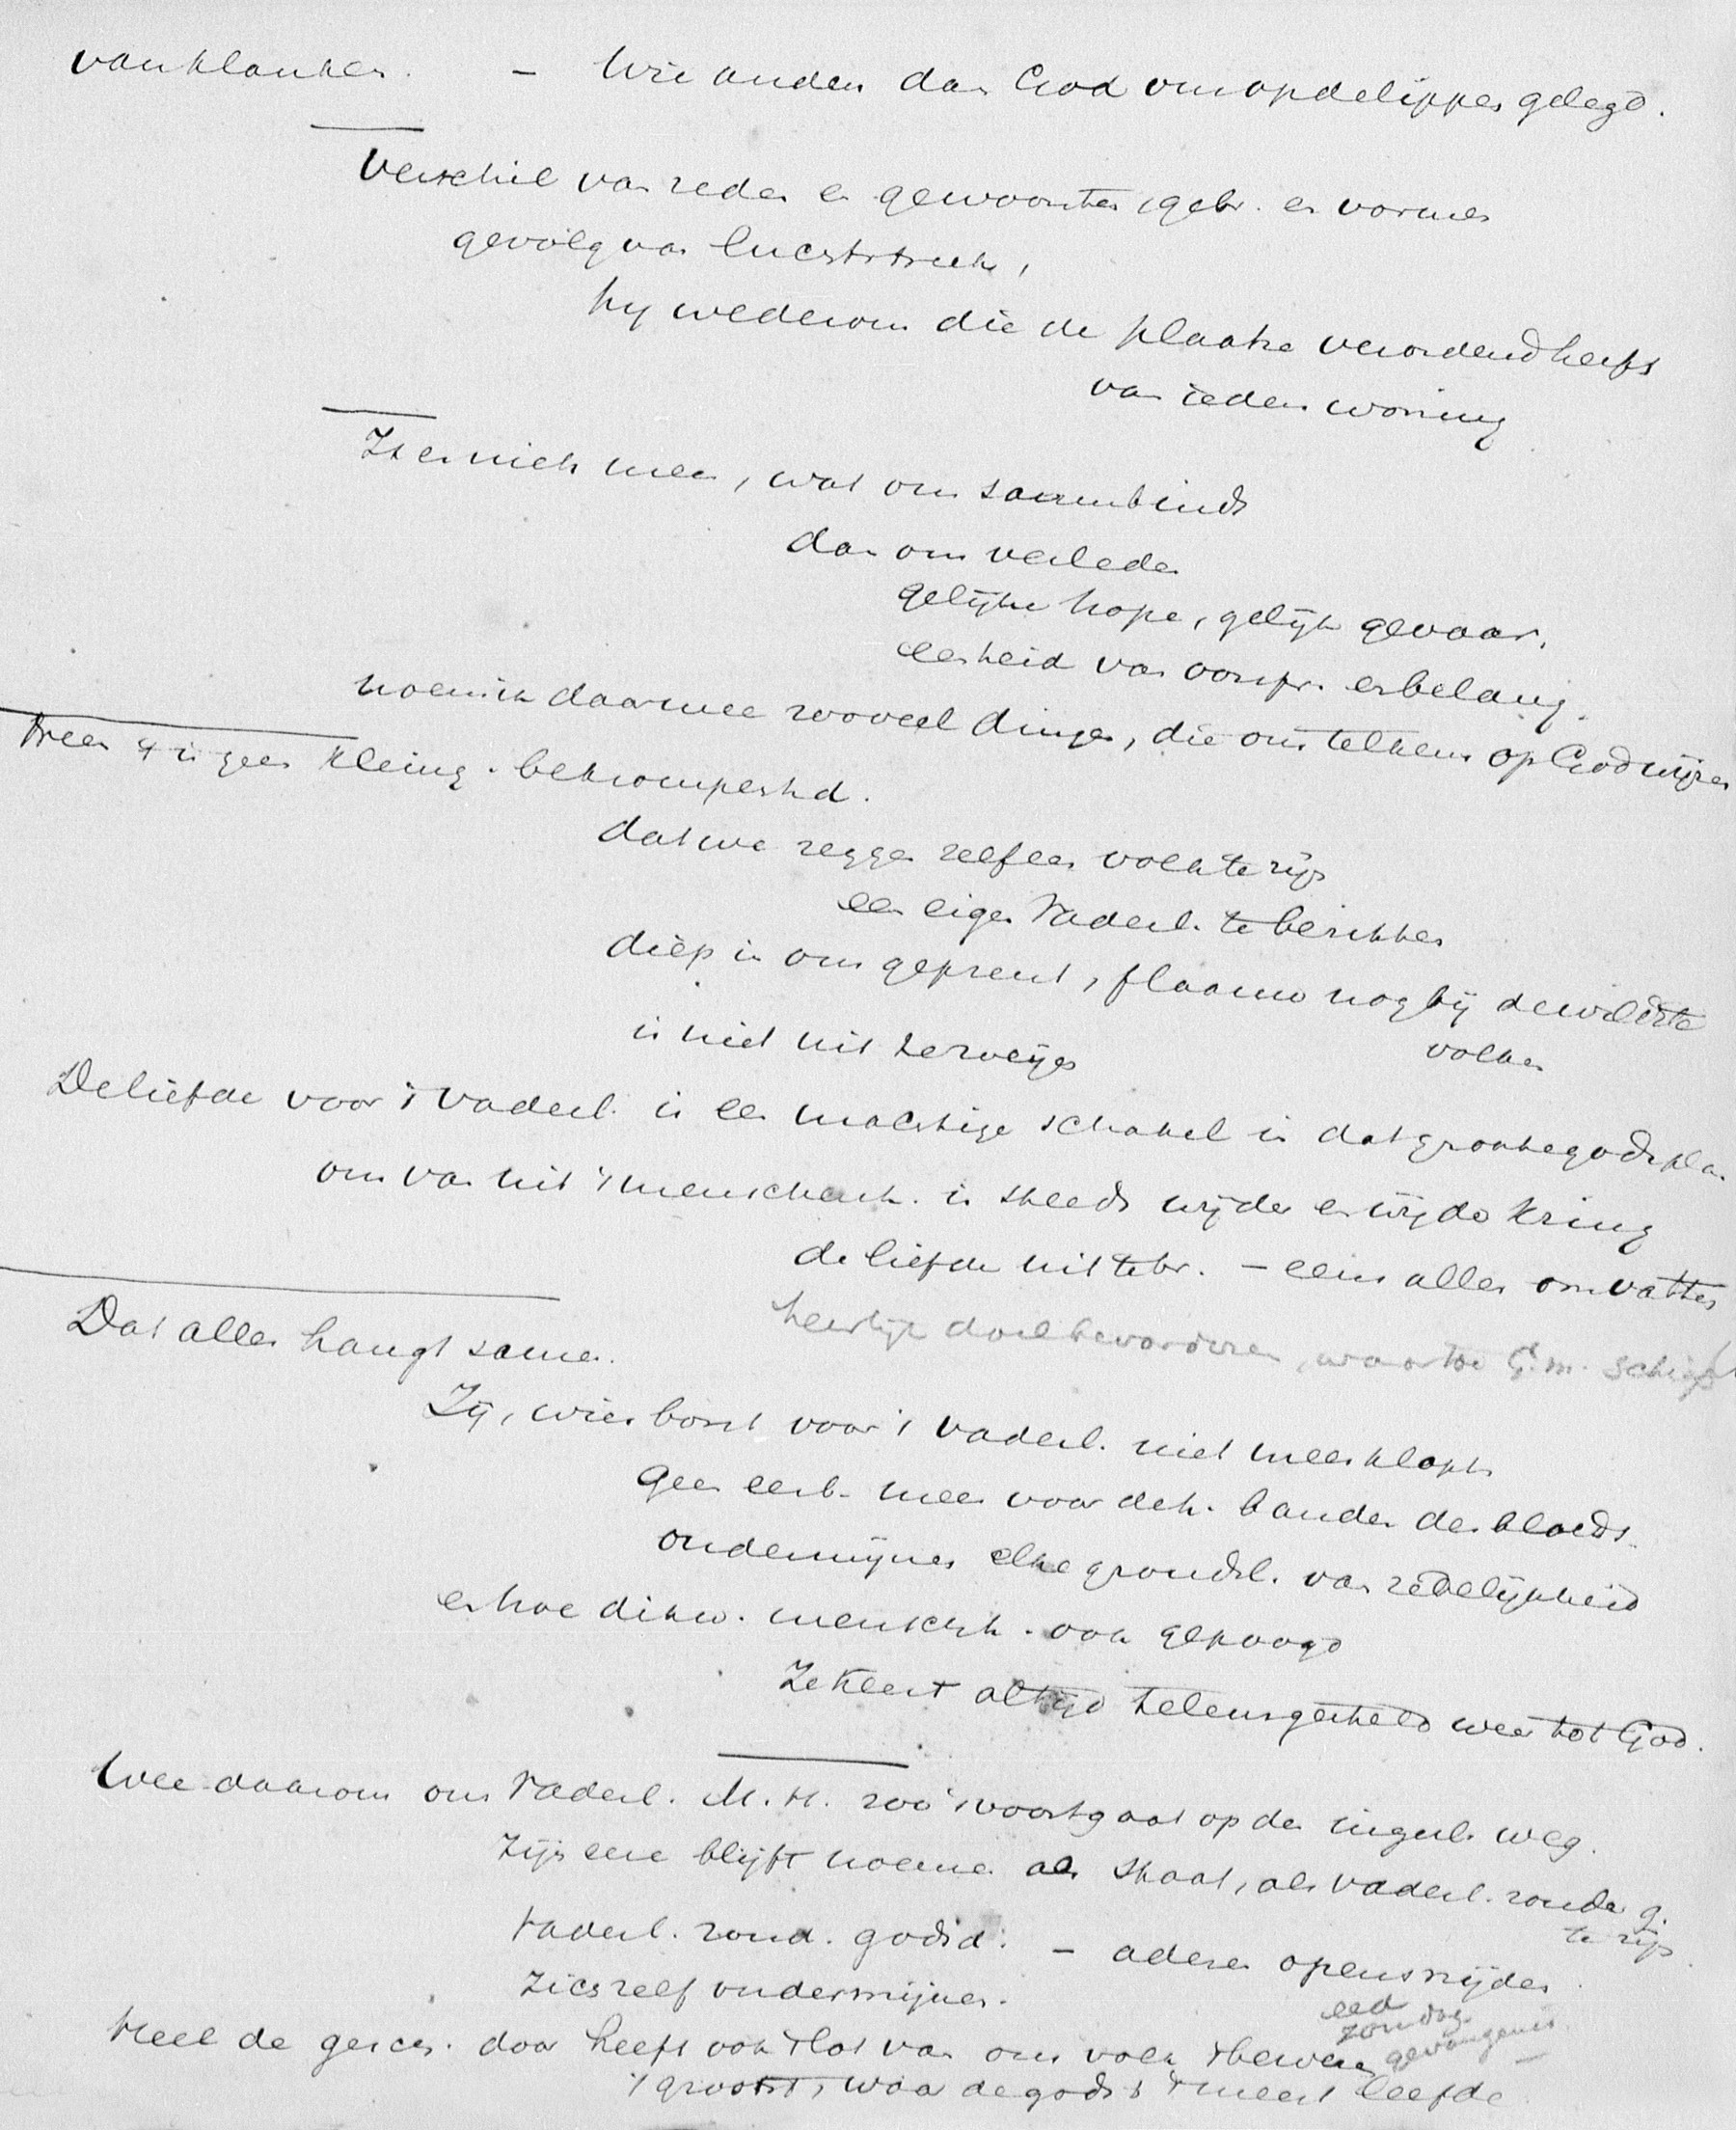 van klanken. – Wie anders dan God ons op de lippen gelegd.
Verschil van zeden en gewoonten, gebr. en vormen
gevolg van luchtstreek,
hy wederom die de plaatse verordend heeft
van ieders woning
Is er niets meer, wat ons saambindt
dan ons verleden
gelijke hope, gelijk gevaar,
eenheid van oorspr. en belang.
noem ik daarmee zooveel dingen, die ons telkens op God wijzen
Neen 't is geen kleing. bekrompenhd.
dat we zeggen zelf een volk te zijn
een eigen Vaderl. te bezitten
diep in ons geprent, flaauw nog bij de wildste
volken
is niet uit te roeijen
De liefde voor 't Vaderl. is een machtige schakel in dat groote godsplan
om van uit 's menschenh. in steeds wijder en wijder kring
de liefde uit te br. – eens allen omvatten
heerlijk doel bevorderen, waartoe G. m. schiep
Dat alles hangt samen.
Zij, wier borst voor 't vaderl. niet meer klopt
geen eerb. meer voor de h. banden des bloeds.
ondermijnen elke grondsl. van zedelijkheid
en hoe dikw. menschh. ook gepoogd
Ze keert altijd teleurgesteld weer tot God.
Wee daarom ons Vaderl. M. H. zoo 't voortgaat op den ingesl. weg.
Zijn eere blijft noemen als Staat, als vaderl. zonder g.
te zijn
Vaderl. zond. godsd. – aderen opensnijden.
Zich zelf ondermijnen.
eed
zondag.
gevangenis.
Heel de gesch. door heeft ook 't lot van ons volk 't bewezen
't grootst, waar de godsd. 't meest leefde